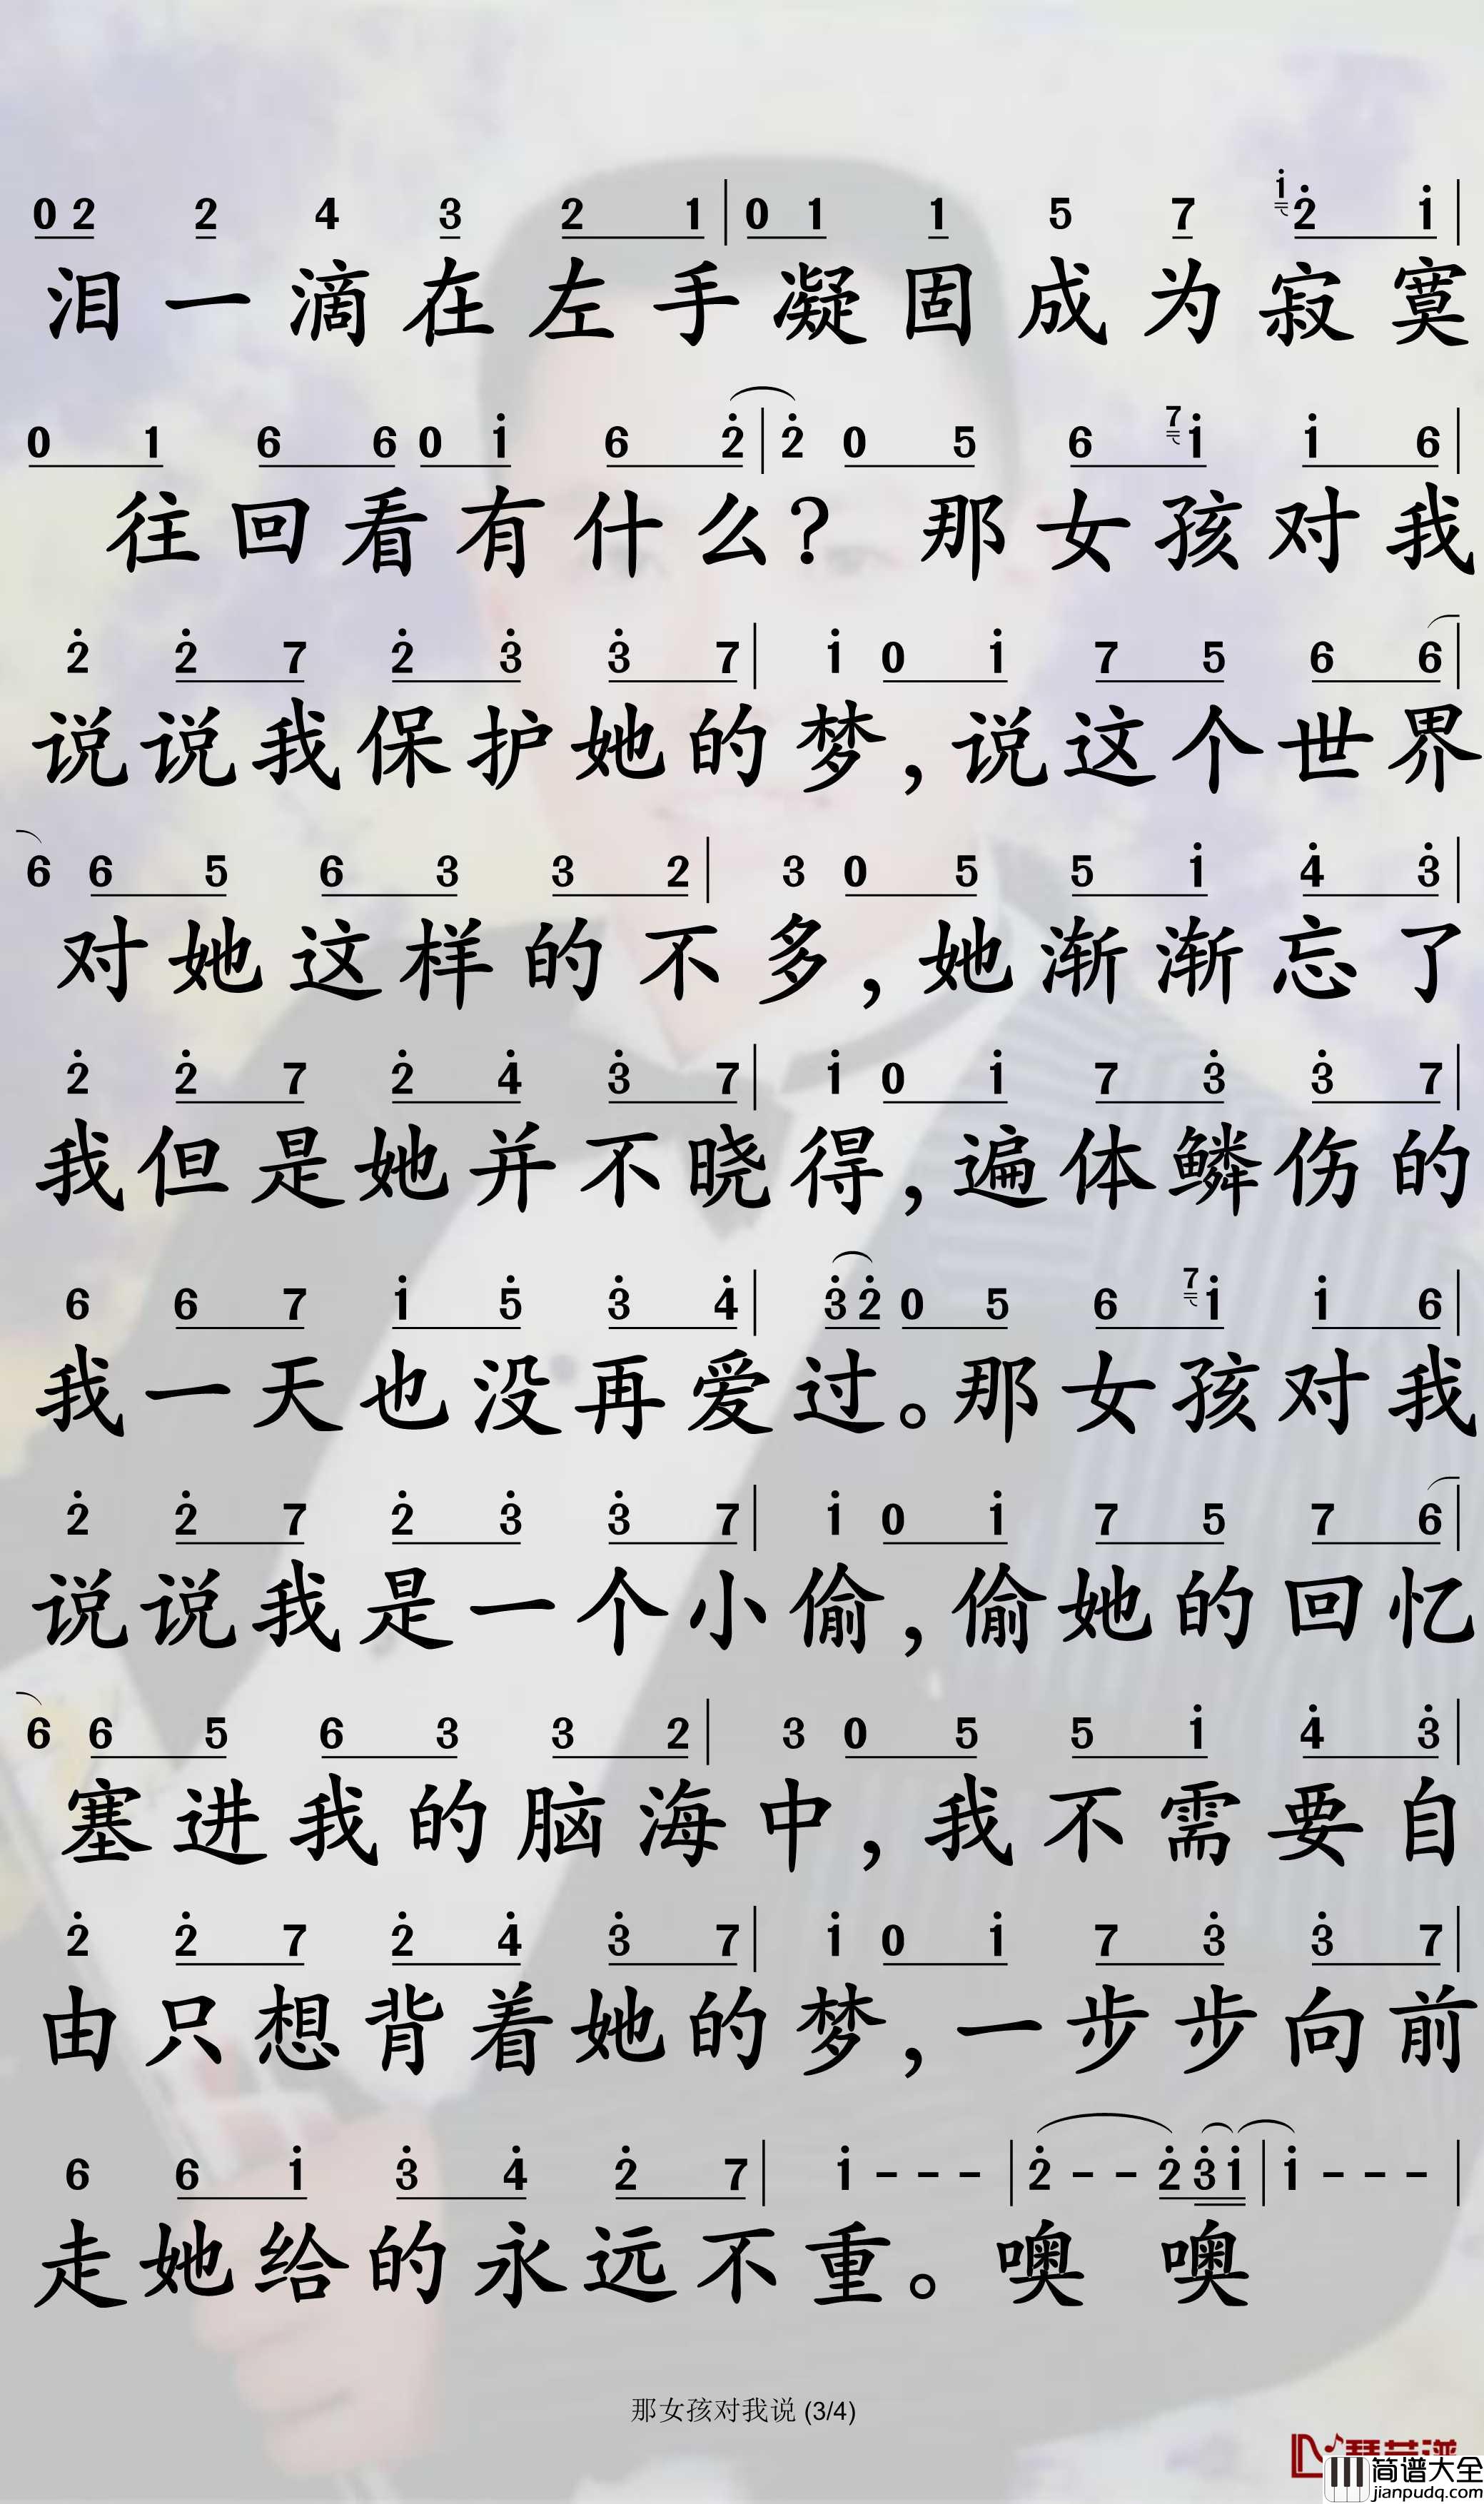 02 2 4 3 2 1 | 0 1 1 5 7 1 2 1 |
泪一滴在左手凝固成为寂寞
0 1 6 6 0 1 6 2 | 2 0 5 6 7 1 1 6 |
往回看有什么？那女孩对我
2 2 7 2 3 3 7 | 1 0 1 7 5 6 6 |
说说我保护她的梦，说这个世界
6 6 5 6 3 3 2 | 3 0 5 5 1 4 3 |
对她这样的不多，她渐渐忘了
2 2 7 2 4 3 7 | 1 0 1 7 3 3 7 |
我但是她并不晓得，遍体鳞伤的
6 6 7 1 5 3 4 | 3 2 0 5 6 7 1 1 6 |
我一天也没再爱过。那女孩对我
2 2 7 2 3 3 7 | 1 0 1 7 5 7 6 |
说说我是一个小偷，偷她的回忆
6 6 5 6 3 3 2 | 3 0 5 5 1 4 3 |
塞进我的脑海中，我不需要自
2 2 7 2 4 3 7 | 1 0 1 7 3 3 7 |
由只想背着她的梦，一步步向前
6 6 1 3 4 2 7 | 1 - - - | 2 - - 2 3 1 | 1 - - - |
走她给的永远不重。噢 噢
那女孩对我说 (3/4)
简谱大全
jianpudq.com